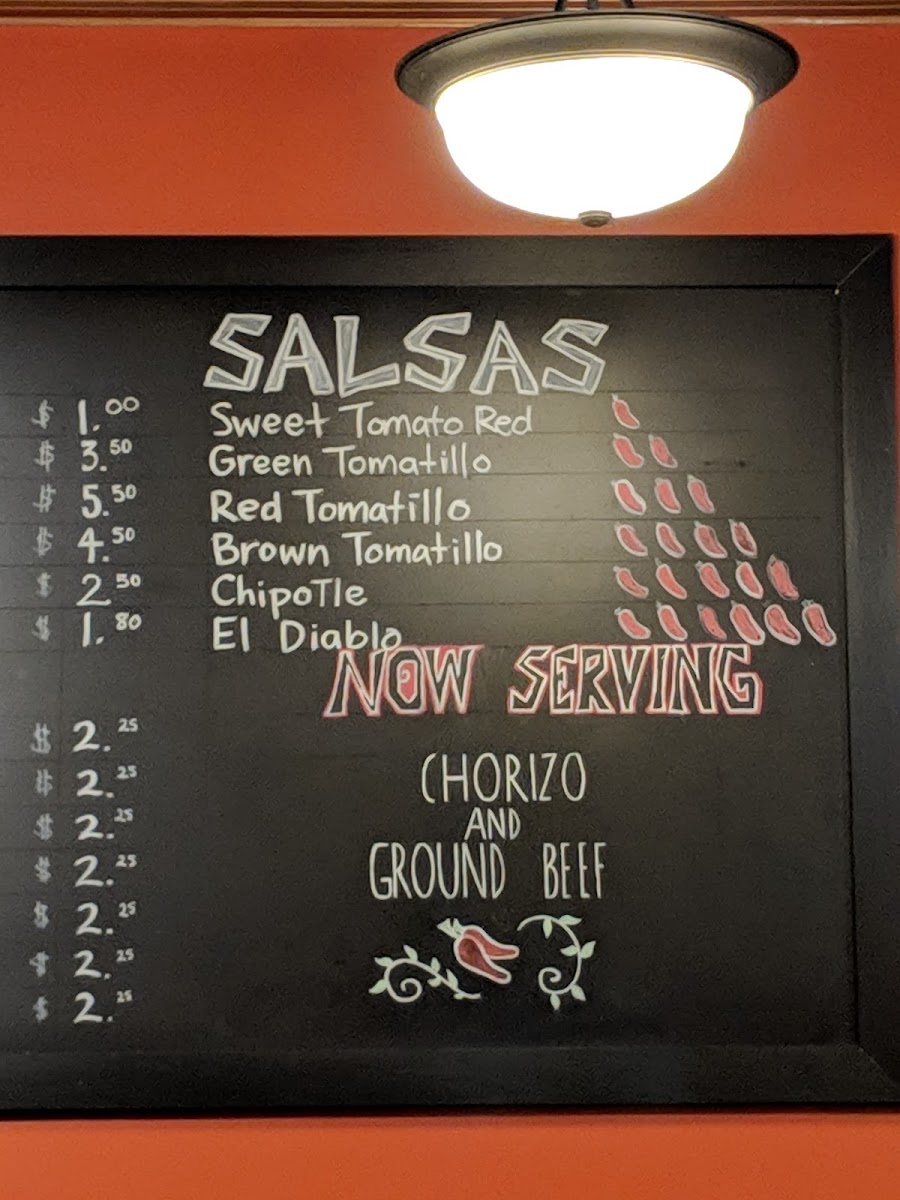 SALSAS
$ 1.00 Sweet Tomato Red
$ 3.50 Green Tomatillo
$ 5.50 Red Tomatillo
$ 4.50 Brown Tomatillo
$ 2.50 Chipotle
$ 1.80 El Diablo
NOW SERVING
$ 2.25
$ 2.25 CHORIZO
$ 2.25 AND
$ 2.25 GROUND BEEF
$ 2.25
$ 2.25
$ 2.25